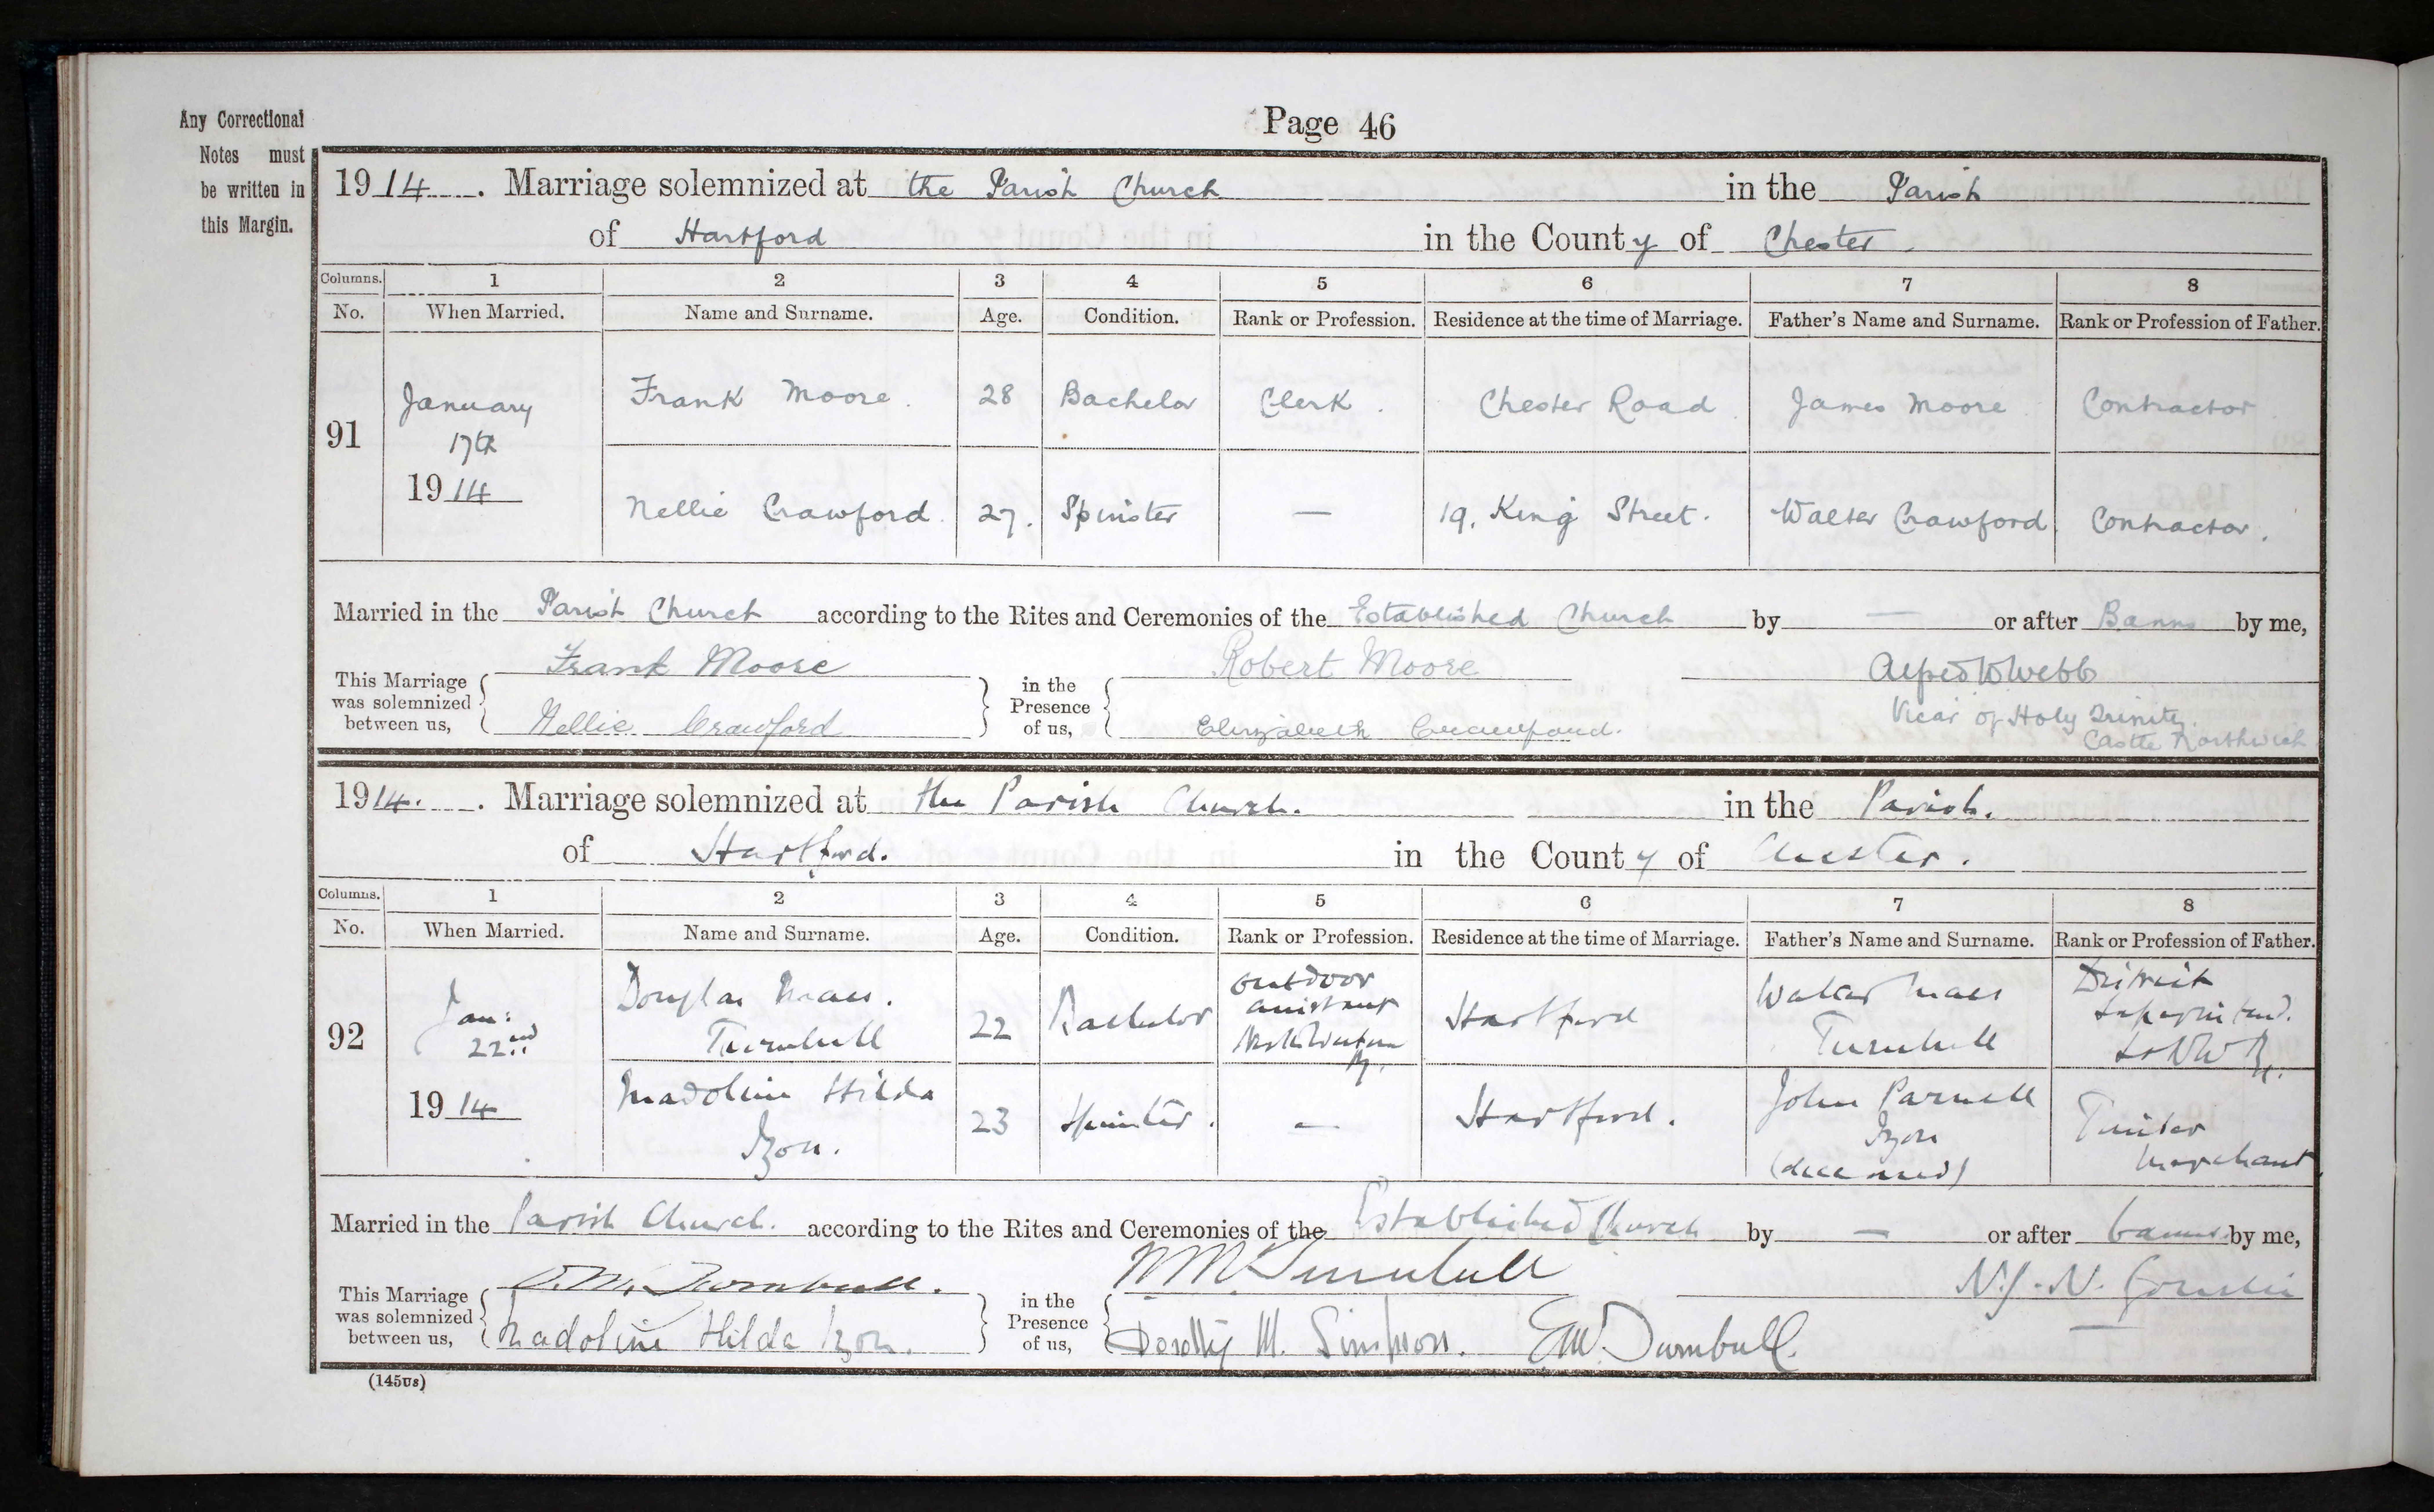 Page 46
Any Correctional
Notes must
be written in
this Margin.
1914. Marriage solemnized at the Parish Church in the Parish
of Hartford in the County of Chester.
Columns. 1 2 3 4 5 6 7 8
No. When Married. Name and Surname. Age. Condition. Rank or Profession. Residence at the time of Marriage. Father's Name and Surname. Rank or Profession of Father.
91 January 17th 1914 Frank Moore. 28 Bachelor Clerk. Chester Road. James Moore Contractor.
Nellie Crawford. 27. Spinster — 19, King Street. Walter Crawford. Contractor.
Married in the Parish Church according to the Rites and Ceremonies of the Established Church by — or after Banns by me,
This Marriage was solemnized between us, Frank Moore in the Presence of us, Robert Moore Alfred W Webb
Nellie Crawford Elizabeth Crawford. Vicar of Holy Trinity.
Castle Northwich
1914. Marriage solemnized at the Parish Church. in the Parish.
of Hartford. in the County of Chester.
Columns. 1 2 3 4 5 6 7 8
No. When Married. Name and Surname. Age. Condition. Rank or Profession. Residence at the time of Marriage. Father's Name and Surname. Rank or Profession of Father.
92 Jan: 22nd 1914 Douglas Turnbull 22 Bachelor outdoor assistant Hartford Walter Turnbull District Superintend. L&NW Ry.
Madoline Hilda Izon. 23 Spinster. — Hartford. John Parnell Izon (deceased) Timber Merchant
Married in the Parish Church. according to the Rites and Ceremonies of the Established Church by — or after banns by me,
This Marriage was solemnized between us, D. M. Turnbull. in the Presence of us, W M Turnbull
Madoline Hilda Izon. Dorothy M. Simpson. E W. Turnbull.
(145US)